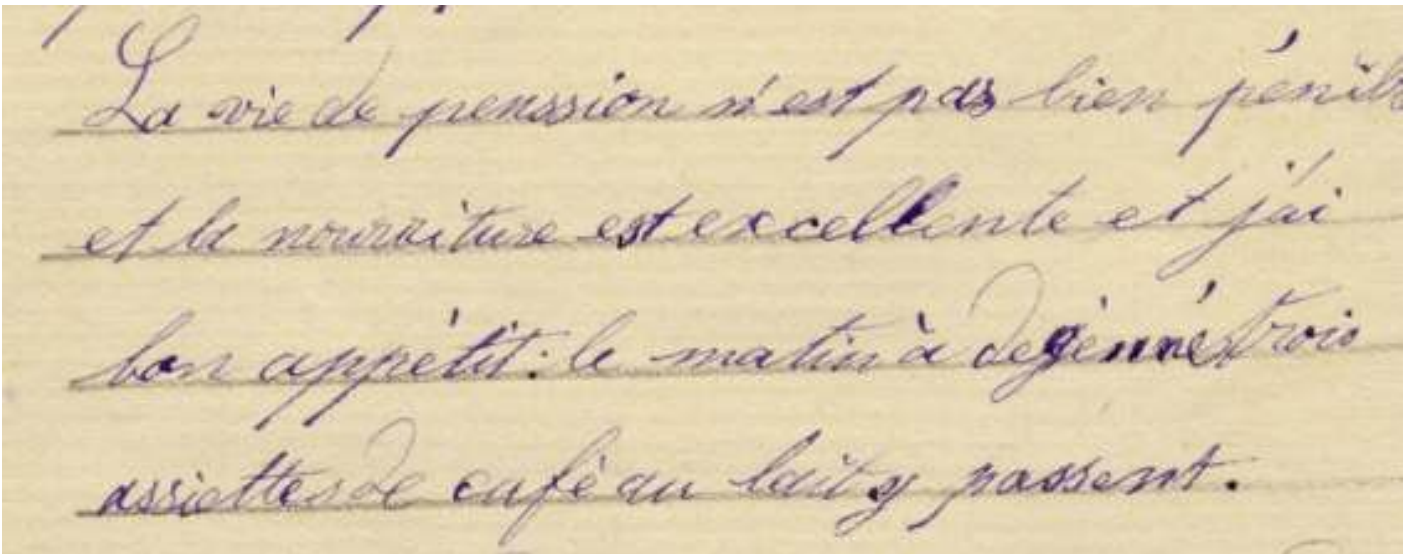 La vie de penssion n'est pas bien pénible
et la nourriture est excellente et j'ai
bon appétit: le matin à degénné trois
assiettes de café au lait y passent.